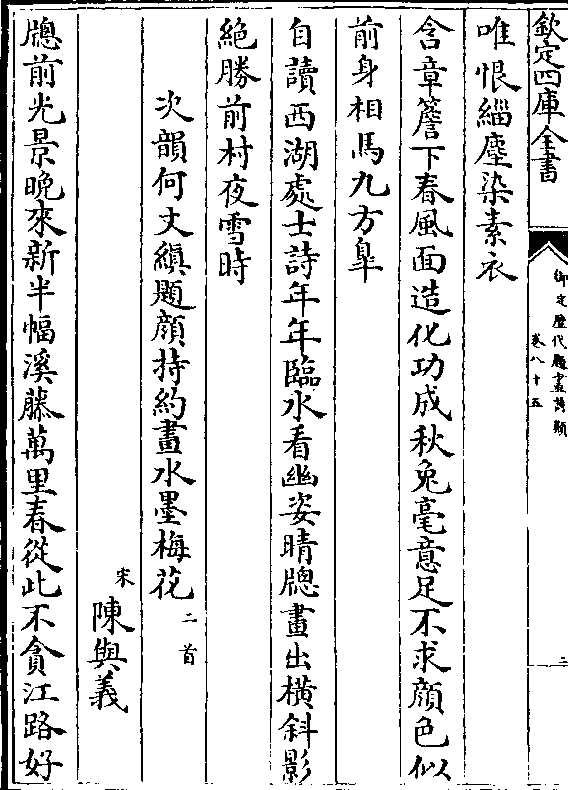 欽定四庫全書
御定歷代題畫詩類
卷八十五
二
唯恨緇塵染素衣
含章簷下春風面造化功成秋兔毫意足不求顔色似
前身相馬九方臯
自讀西湖處士詩年年臨水看幽姿晴牕畫出橫斜影
絶勝前村夜雪時
次韻何文縝題顔持約畫水墨梅花二首
宋陳與義
牕前光景晩來新半幅溪藤萬里春從此不貪江路好